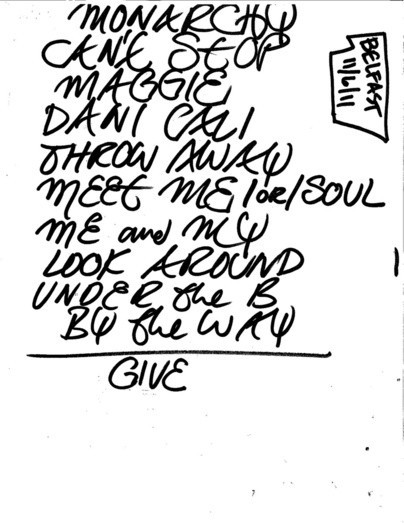 MONARCHY
CAN'T STOP
MAGGIE
DANI CALI
THROW AWAY
MEET ME/or/SOUL
ME and MY
LOOK AROUND
UNDER the B
BY the WAY
GIVE
BELFAST
11/6/11